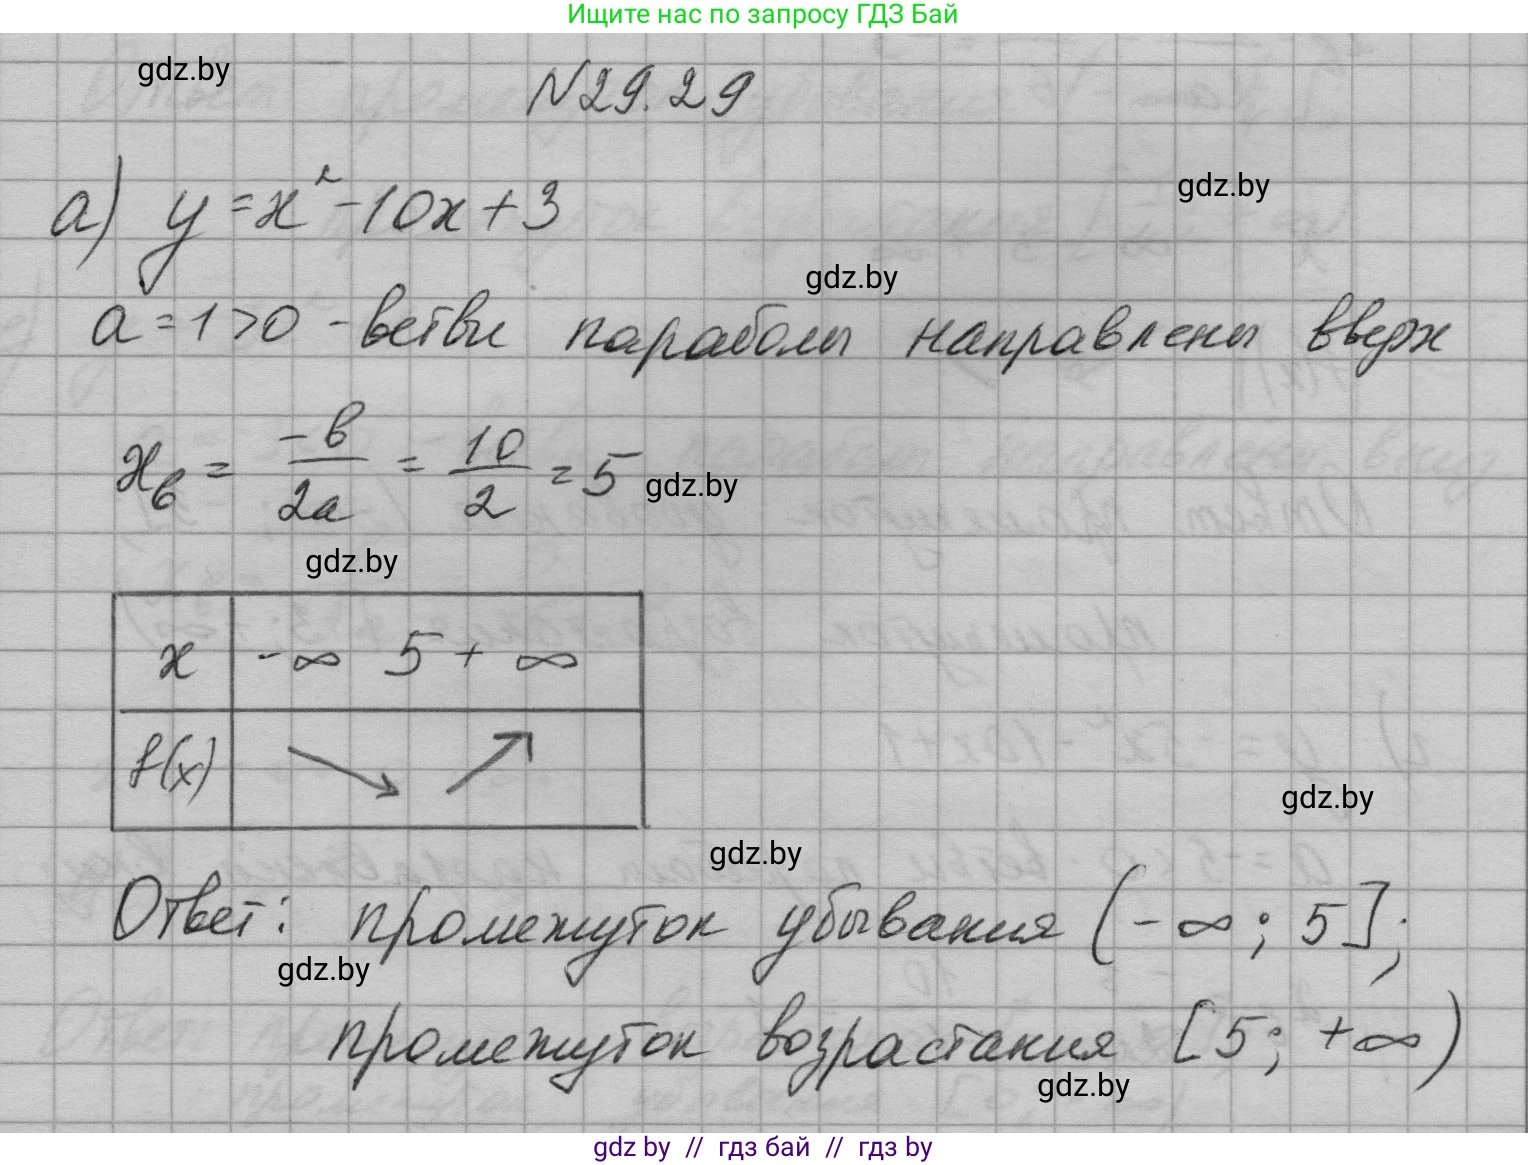 Ищите нас по запросу ГДЗ Бай
gdz.by
№29.29
а) y = x² - 10x + 3
gdz.by
gdz.by
a = 1 > 0 - ветви параболы направлены вверх
xв = -в/2a = 10/2 = 5
gdz.by
gdz.by
x -∞ 5 +∞
f(x) ↘ ↗
gdz.by
gdz.by
Ответ: промежуток убывания (-∞; 5];
gdz.by
промежуток возрастания [5; +∞)
gdz.by
gdz by // гдз бай // гдз by